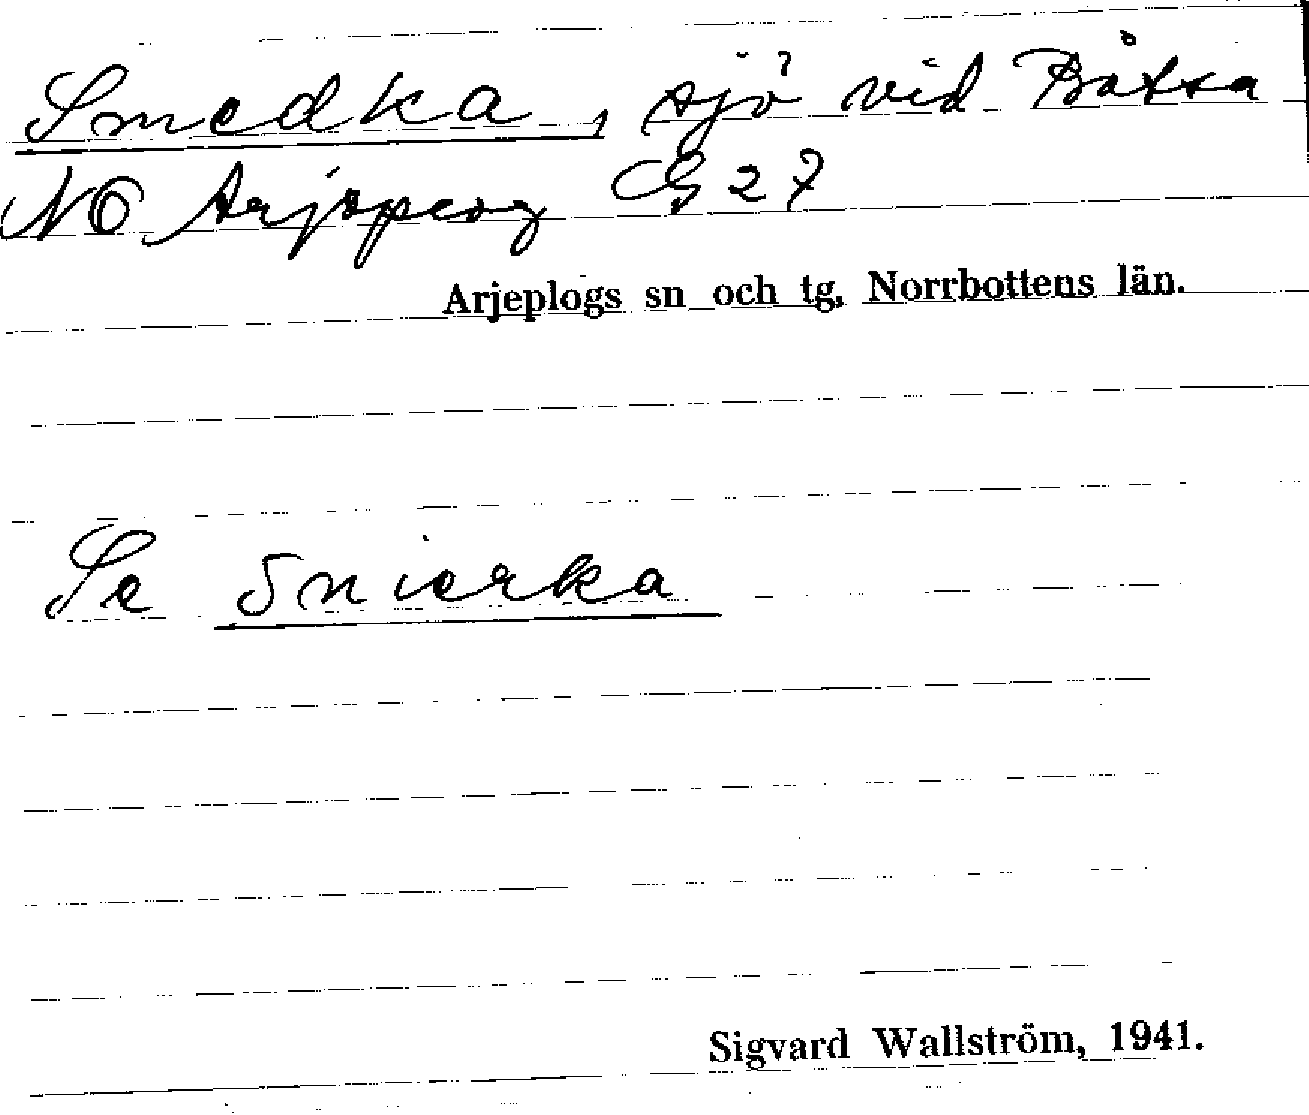 Smedka, sjö vid Båtsa
NO Arjeplog G 27
Arjeplogs sn och tg, Norrbottens län.
Se Snierka
Sigvard Wallström, 1941.